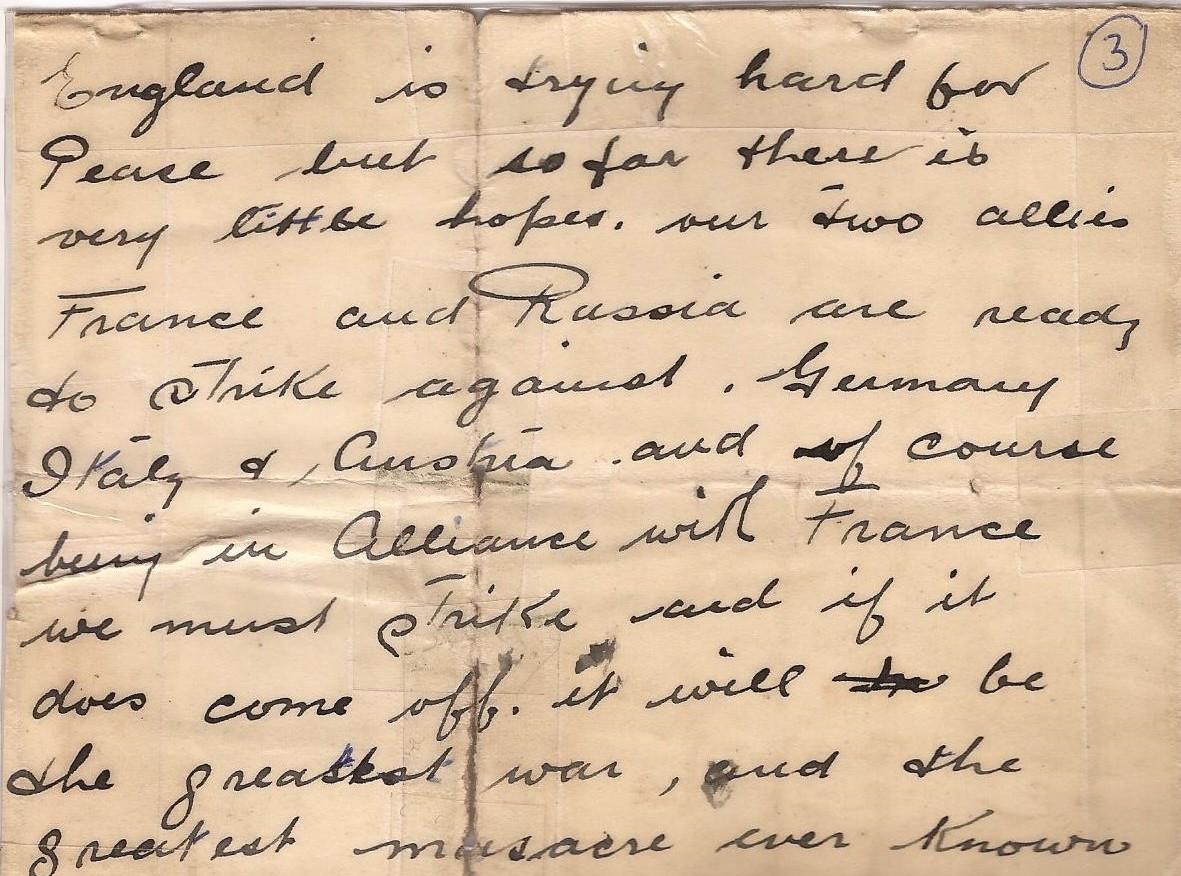 3
England is trying hard for
Pease but so far there is
very little hopes. our two allies
France and Russia are ready
to strike against. Germany
Italy & , Austria . and of course
being in Alliance with France
we must strike and if it
does come off. it will be
the greatest war , and the
greatest masacre ever known